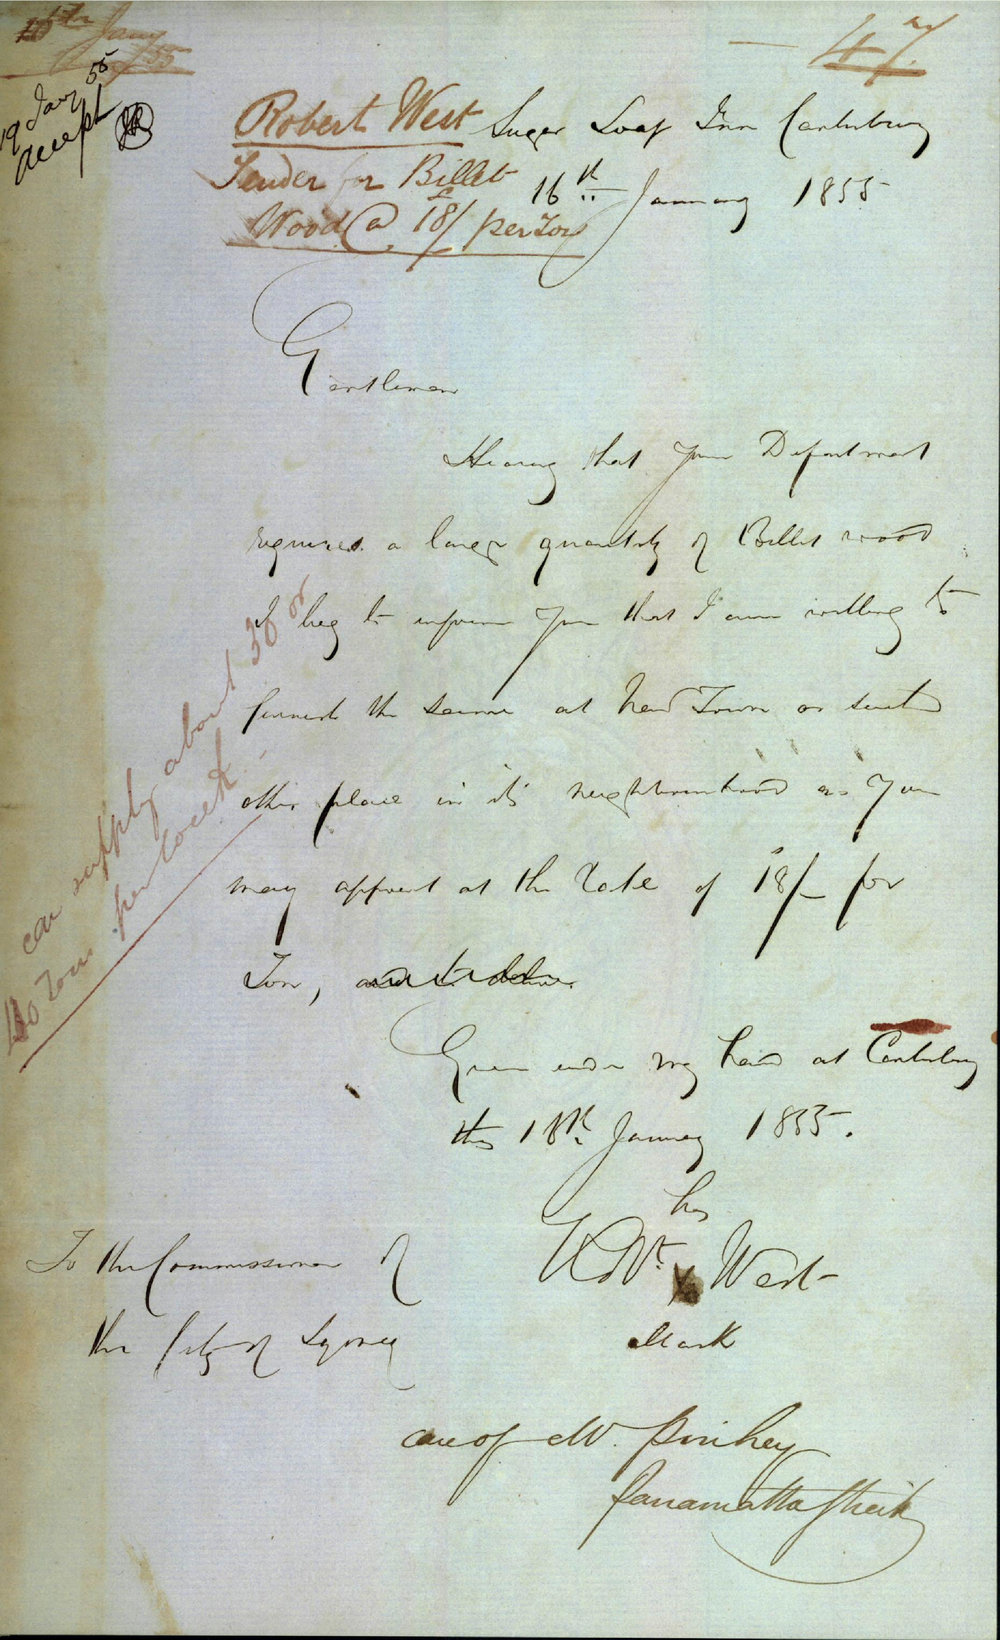 47
Jany
55
19 Jany 55
accept
Robert West
Tender for Billet
Wood @ 18/ per Ton
Sugar Loaf Inn Canterbury
16th January 1855
Gentlemen
Hearing that your Department
requires a large quantity of Billet wood
I beg to inform you that I am willing to
furnish the same at New Town or such
other place in it's neighbourhood as you
may appoint at the Rate of 18/- per
Ton,
Given under my hand at Canterbury
this 16th January 1855.
his
Robt. X West
Mark
To the Commissioners of
the City of Sydney
care of Mr. Pinhey
Parramatta Street
can supply about 30 or
40 Tons per week